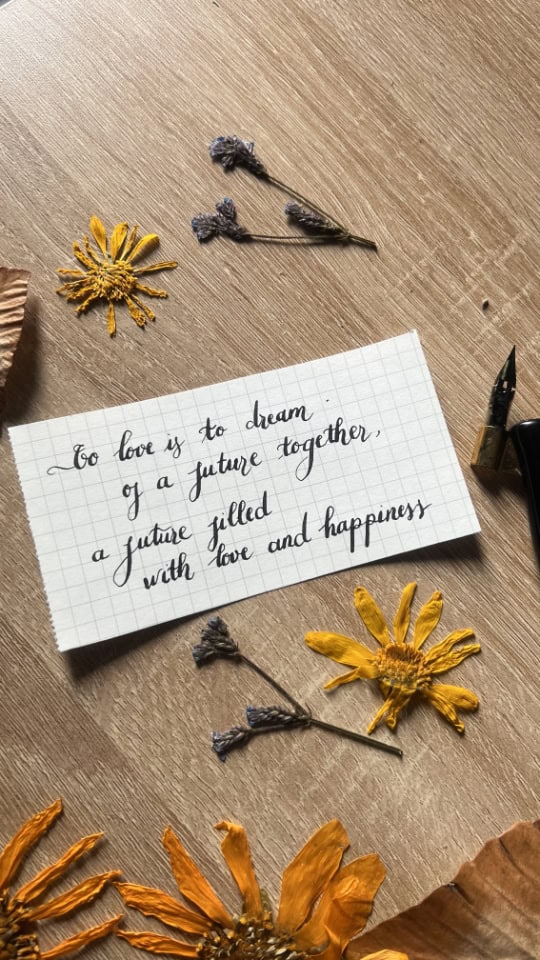 To love is to dream
of a future together,
a future filled
with love and happiness